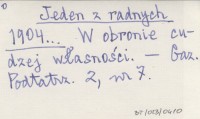 Jeden z radnych
1904... W obronie cu-
dzej własności. — Gaz.
Podtatrz. 2, nr 7.
BT/003/0410